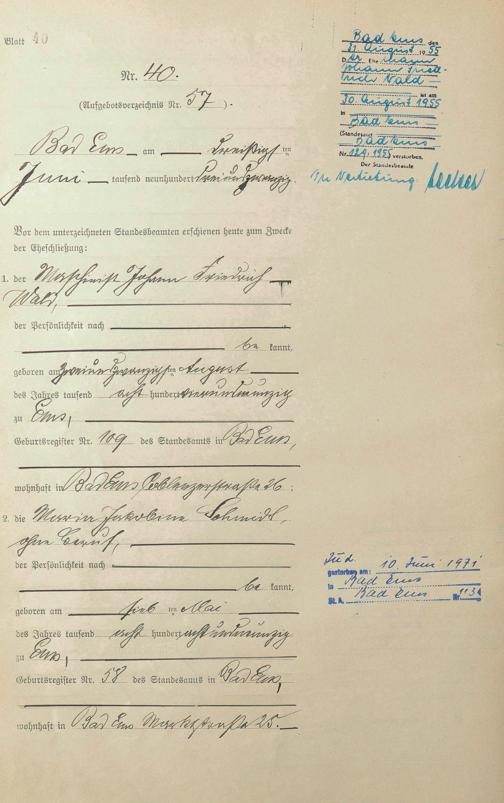 Blatt 40
Nr. 40.
(Aufgebotsverzeichnis Nr. 57 ).
Bad Ems am Dreißigsten
Juni tausend neunhundert dreiundzwanzig.
Vor dem unterzeichneten Standesbeamten erschienen heute zum Zwecke
der Eheschließung:
1. der Maschinist Johann Friedrich
Wald,
der Persönlichkeit nach
be kannt,
geboren am zweiundzwanzigsten August
des Jahres tausend acht hundert vierundneunzig
zu Ems,
Geburtsregister Nr. 109 des Standesamts in Bad Ems,
wohnhaft in Bad Ems, Coblenzerstraße 26 ;
2. die Maria Jakobine Schmidt,
ohne Beruf,
der Persönlichkeit nach
be kannt,
geboren am ten Mai
des Jahres tausend acht hundert achtundneunzig
zu Ems,
Geburtsregister Nr. 58 des Standesamts in Bad Ems,
wohnhaft in Bad Ems Marktstraße 25.
Bad Ems den
31. August 1955
Der Ehemann
Johann Fried-
rich Wald
ist am
30. August 1955
in
Bad Ems
(Standesamt
Bad Ems
Nr. 1955 verstorben.
Der Standesbeamte
In Vertretung
gestorben am: 10. Juni 1971
in Bad Ems
St. A. Bad Ems Nr.